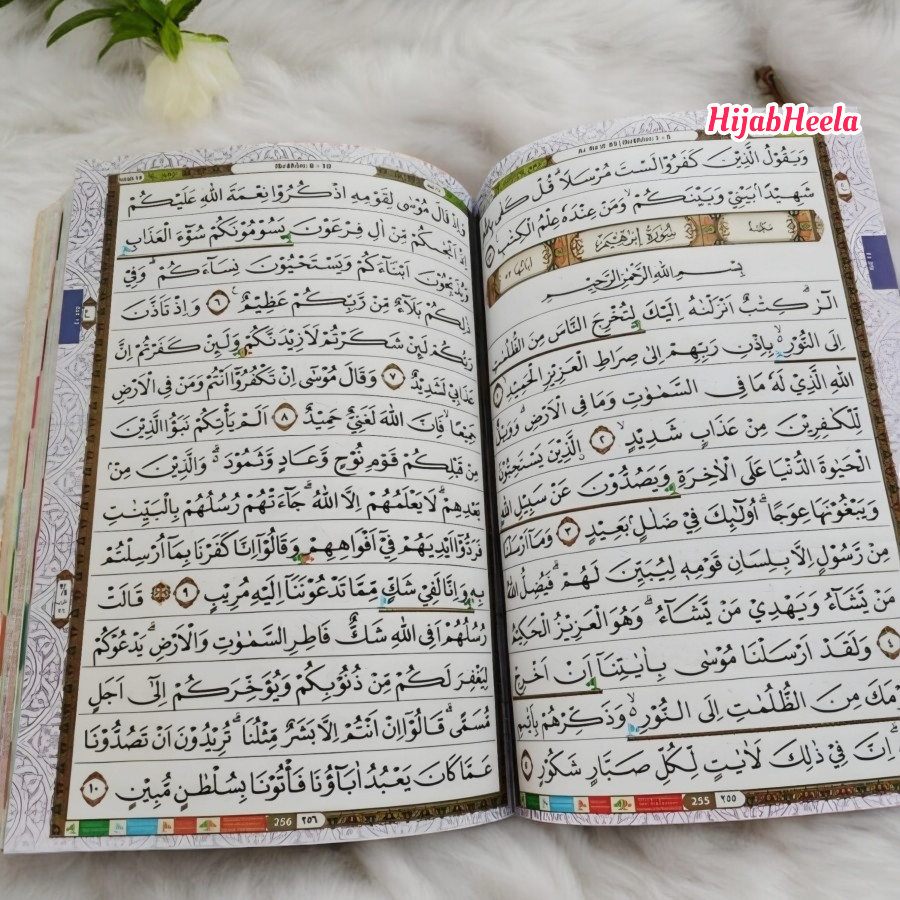 HijabHeela
وَيَقُوْلُ الَّذِيْنَ كَفَرُوْا لَسْتَ مُرْسَلًاۗ قُلْ كَفٰى بِاللّٰهِ
شَهِيْدًاۢ بَيْنِيْ وَبَيْنَكُمْۙ وَمَنْ عِنْدَهٗ عِلْمُ الْكِتٰبِ
مَكِّيَّة سُوْرَةُ اِبْرٰهِيْمَ اٰيَاتُهَا ٥٢
بِسْمِ اللّٰهِ الرَّحْمٰنِ الرَّحِيْمِ
الۤرٰۗ كِتٰبٌ اَنْزَلْنٰهُ اِلَيْكَ لِتُخْرِجَ النَّاسَ مِنَ الظُّلُمٰتِ
اِلَى النُّوْرِ ەۙ بِاِذْنِ رَبِّهِمْ اِلٰى صِرَاطِ الْعَزِيْزِ الْحَمِيْدِۙ ١
اللّٰهِ الَّذِيْ لَهٗ مَا فِى السَّمٰوٰتِ وَمَا فِى الْاَرْضِۗ وَوَيْلٌ
لِّلْكٰفِرِيْنَ مِنْ عَذَابٍ شَدِيْدٍۙ ٢ الَّذِيْنَ يَسْتَحِبُّوْنَ
الْحَيٰوةَ الدُّنْيَا عَلَى الْاٰخِرَةِ وَيَصُدُّوْنَ عَنْ سَبِيْلِ اللّٰهِ
وَيَبْغُوْنَهَا عِوَجًاۗ اُولٰۤىِٕكَ فِيْ ضَلٰلٍۢ بَعِيْدٍ ٣ وَمَآ اَرْسَلْنَا
مِنْ رَّسُوْلٍ اِلَّا بِلِسَانِ قَوْمِهٖ لِيُبَيِّنَ لَهُمْۗ فَيُضِلُّ اللّٰهُ
مَنْ يَّشَاۤءُ وَيَهْدِيْ مَنْ يَّشَاۤءُۗ وَهُوَ الْعَزِيْزُ الْحَكِيْمُ
٤ وَلَقَدْ اَرْسَلْنَا مُوْسٰى بِاٰيٰتِنَآ اَنْ اَخْرِجْ
قَوْمَكَ مِنَ الظُّلُمٰتِ اِلَى النُّوْرِ ەۙ وَذَكِّرْهُمْ بِاَيّٰىمِ
اللّٰهِۗ اِنَّ فِيْ ذٰلِكَ لَاٰيٰتٍ لِّكُلِّ صَبَّارٍ شَكُوْرٍ ٥
255 ٢٥٥
وَاِذْ قَالَ مُوْسٰى لِقَوْمِهِ اذْكُرُوْا نِعْمَةَ اللّٰهِ عَلَيْكُمْ
اِذْ اَنْجٰىكُمْ مِّنْ اٰلِ فِرْعَوْنَ يَسُوْمُوْنَكُمْ سُوْۤءَ الْعَذَابِ
وَيُذَبِّحُوْنَ اَبْنَاۤءَكُمْ وَيَسْتَحْيُوْنَ نِسَاۤءَكُمْۗ وَفِيْ
ذٰلِكُمْ بَلَاۤءٌ مِّنْ رَّبِّكُمْ عَظِيْمٌ ٦ وَاِذْ تَاَذَّنَ
رَبُّكُمْ لَىِٕنْ شَكَرْتُمْ لَاَزِيْدَنَّكُمْ وَلَىِٕنْ كَفَرْتُمْ اِنَّ
عَذَابِيْ لَشَدِيْدٌ ٧ وَقَالَ مُوْسٰٓى اِنْ تَكْفُرُوْٓا اَنْتُمْ وَمَنْ فِى الْاَرْضِ
جَمِيْعًا فَاِنَّ اللّٰهَ لَغَنِيٌّ حَمِيْدٌ ٨ اَلَمْ يَأْتِكُمْ نَبَؤُا الَّذِيْنَ
مِنْ قَبْلِكُمْ قَوْمِ نُوْحٍ وَّعَادٍ وَّثَمُوْدَ ۗ وَالَّذِيْنَ مِنْۢ
بَعْدِهِمْۗ لَا يَعْلَمُهُمْ اِلَّا اللّٰهُ ۗ جَاۤءَتْهُمْ رُسُلُهُمْ بِالْبَيِّنٰتِ
فَرَدُّوْٓا اَيْدِيَهُمْ فِيْٓ اَفْوَاهِهِمْ وَقَالُوْٓا اِنَّا كَفَرْنَا بِمَآ اُرْسِلْتُمْ
بِهٖ وَاِنَّا لَفِيْ شَكٍّ مِّمَّا تَدْعُوْنَنَآ اِلَيْهِ مُرِيْبٍ ٩ ۞ قَالَتْ
رُسُلُهُمْ اَفِى اللّٰهِ شَكٌّ فَاطِرِ السَّمٰوٰتِ وَالْاَرْضِۗ يَدْعُوْكُمْ
لِيَغْفِرَ لَكُمْ مِّنْ ذُنُوْبِكُمْ وَيُؤَخِّرَكُمْ اِلٰٓى اَجَلٍ
مُّسَمًّىۗ قَالُوْٓا اِنْ اَنْتُمْ اِلَّا بَشَرٌ مِّثْلُنَا ۗ تُرِيْدُوْنَ اَنْ تَصُدُّوْنَا
عَمَّا كَانَ يَعْبُدُ اٰبَاۤؤُنَا فَأْتُوْنَا بِسُلْطٰنٍ مُّبِيْنٍ ١٠
256 ٢٥٦